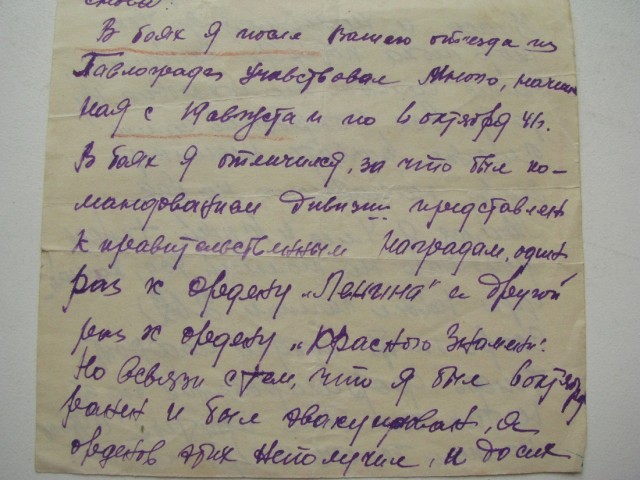 В боях я после Вашего отъезда из
Павлограда участвовал много, начи
ная с 19 августа и по 6 октября 41г.
В боях я отличился, за что был ко-
мандованием дивизии представлен
к правительственным наградам, один
раз к ордену „Ленина" и другой
раз к ордену „Красного Знамени".
Но всвязи с тем, что я был в октябре
ранен и был эвакуирован, я
орденов этих неполучил, и до сих